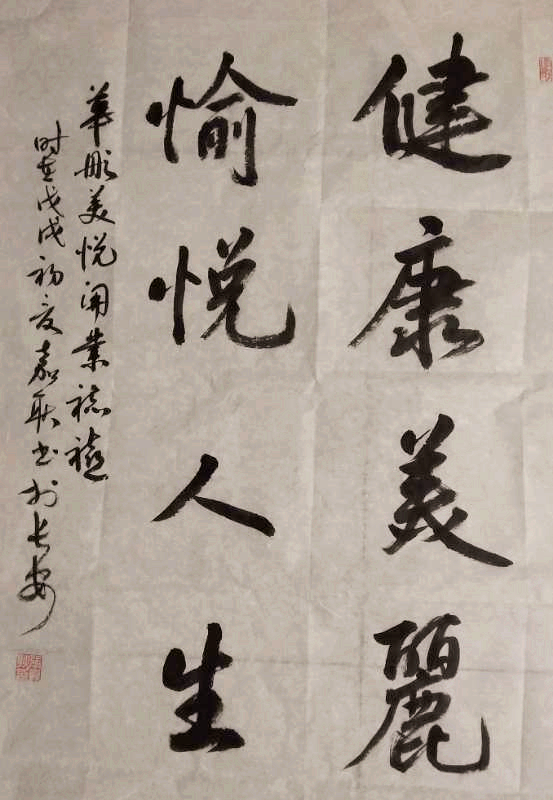 健康美麗
愉悦人生
華彫美悦開業誌禧
时在戊戌初夏嘉联书於长安